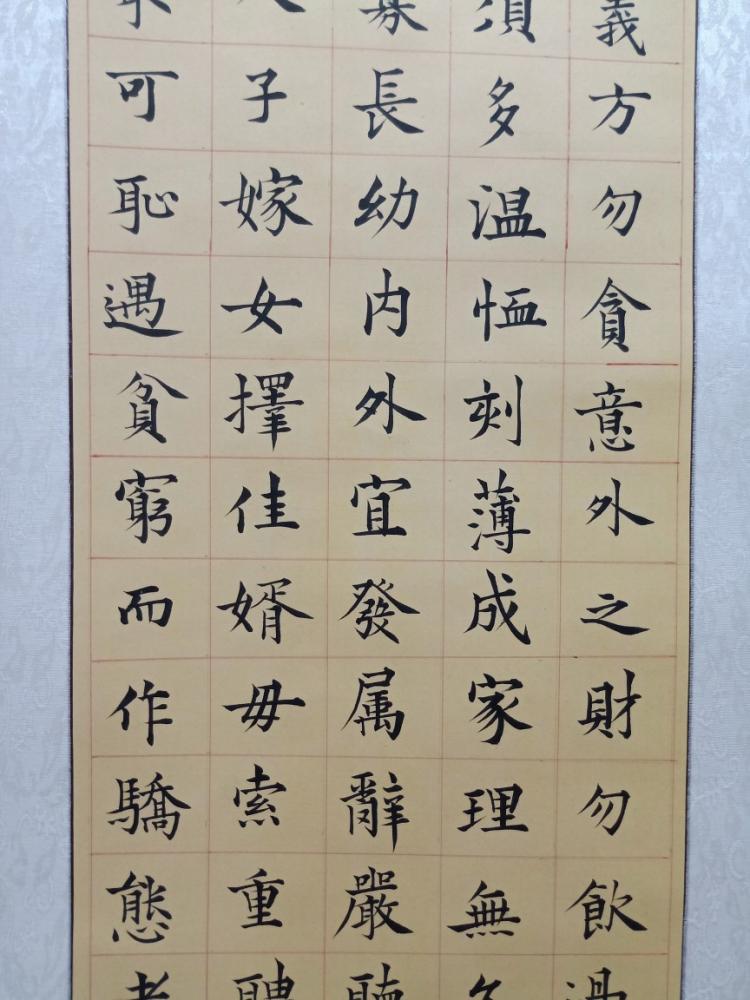 義方勿貪意外之財勿飲過
須多温恤刻薄成家理無久
寡長幼内外宜發属辭嚴聽
人子嫁女擇佳婿毋索重聘
可恥遇貧窮而作驕態者